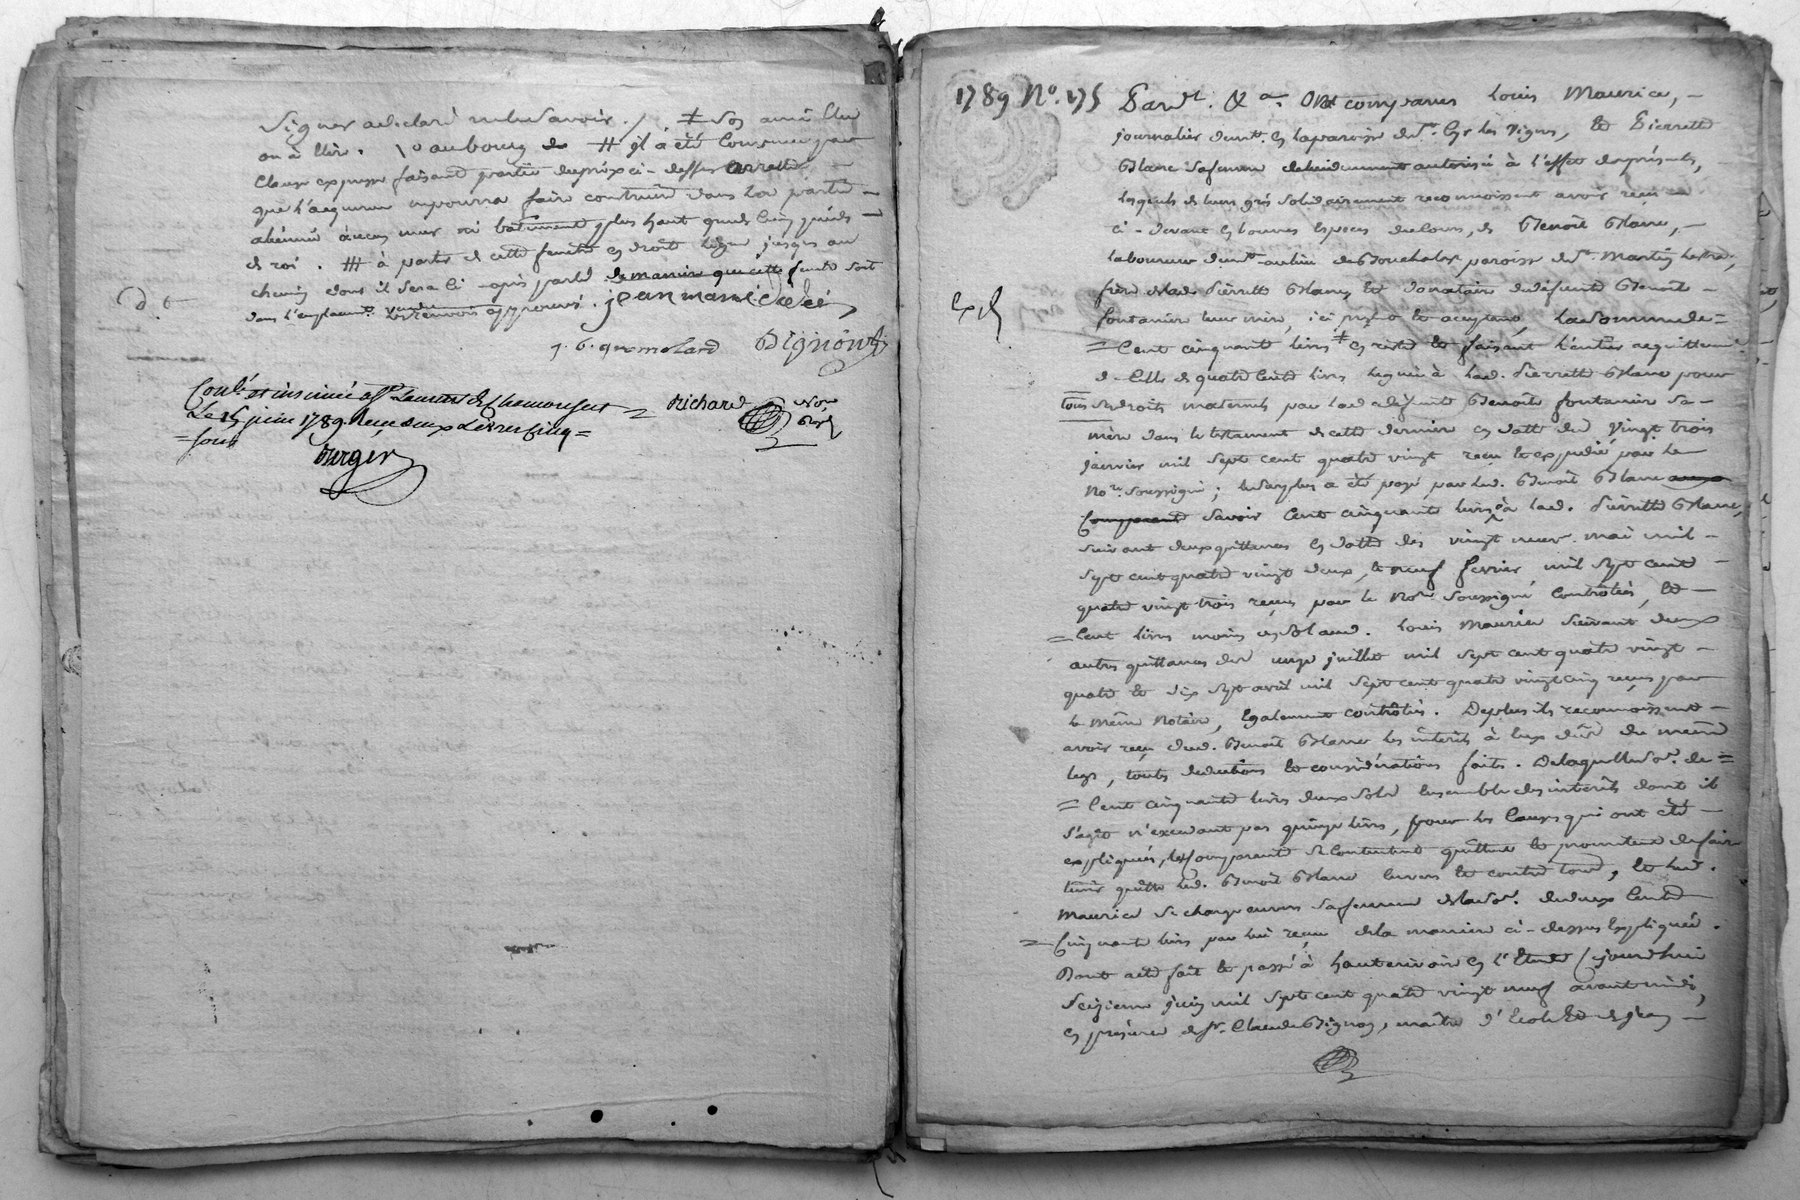 signer a déclaré ne le savoir. / ≠ son ami élu
ou à élire. \ o au bourg de ⧺ il a été convenu par
clause expresse faisant partie du prix ci-dessus
que l'acquereur ne pourra faire construire dans la partie
aucun mur ni batiment plus haut que de cinq pieds
de roi. à partir de cette fenetre en droite ligne jusques au
chemin dont il sera ci-après parlé de maniere que cette fenetre soit
dans l'emplacement vendu renvois approuvé. jean marie
Bignon
Conlé et insinué à St Laurent de Chamousset
Le 15 juin 1789. Reçu deux Livres cinq =
= sous
Richard Nore
Royl
1789 No. 175 Pardt. &a. Ont comparus Louis Maurice, –
journalier demt. en la paroisse de St. les Vignes, et Pierrette
Blanc sa femme de lui duement autorisée à l'effet des présentes,
lesquels de leurs grés solidairement reconnoissent avoir reçu
ci-devant en bonnes especes de cours, de Benoît Blanc, –
laboureur demt. au lieu de paroisse de St. Martin
frère de lad. Pierrette Blanc, et donataire de défunte Benoîte –
fontanier leur mère, ici présent et acceptant, la somme de =
= Cent cinquante livres ≠ en reste et faisant l'entier acquittement
de celle de quatre cents livres leguée à lad. Pierrette Blanc pour
tous ses droits maternels par lad. défunte Benoîte fontanier sa –
mère dans le testament de cette derniere en datte du vingt trois
janvier mil sept cent quatre vingt reçu et expédié par le
Nore. soussigné; le surplus a été payé par led. Benoît Blanc
savoir cent cinquante livres à lad. Pierrette Blanc,
suivant deux quittances en datte des vingt neuf mai mil –
sept cent quatre vingt deux, et neuf fevrier mil sept cent –
quatre vingt trois reçues par le Nore soussigné contrôlées, et –
= Cent livres moins aud. Louis Maurice suivant deux
autres quittances des onze juillet mil sept cent quatre vingt –
quatre et dix sept avril mil sept cent quatre vingt cinq reçues par
le même Notaire, également contrôlées. De plus ils reconnoissent –
avoir reçu dud. Benoît Blanc les intérêts à eux dûs du même
legs, toutes deductions et considérations faites. De laquelle so. de =
= Cent cinquante livres deux sols ensemble des intérêts dont il
s'agit n'excedant pas quinze livres, pour les causes qui ont été –
expliquées, les comparants se contentent quittent et promettent de faire
tenir quitte led. Benoît Blanc envers et contre tous, et led.
Maurice se charge envers sa femme de la so. de deux cents
= Cinquante livres par lui reçue de la maniere ci-dessus expliquée.
Dont acte fait et passé à hauterivoire en l'Etude cejourd'hui
seizieme juin mil sept cent quatre vingt neuf avant midi,
en présence de sr. Claude Bignon, maître d'Ecole et de jean –